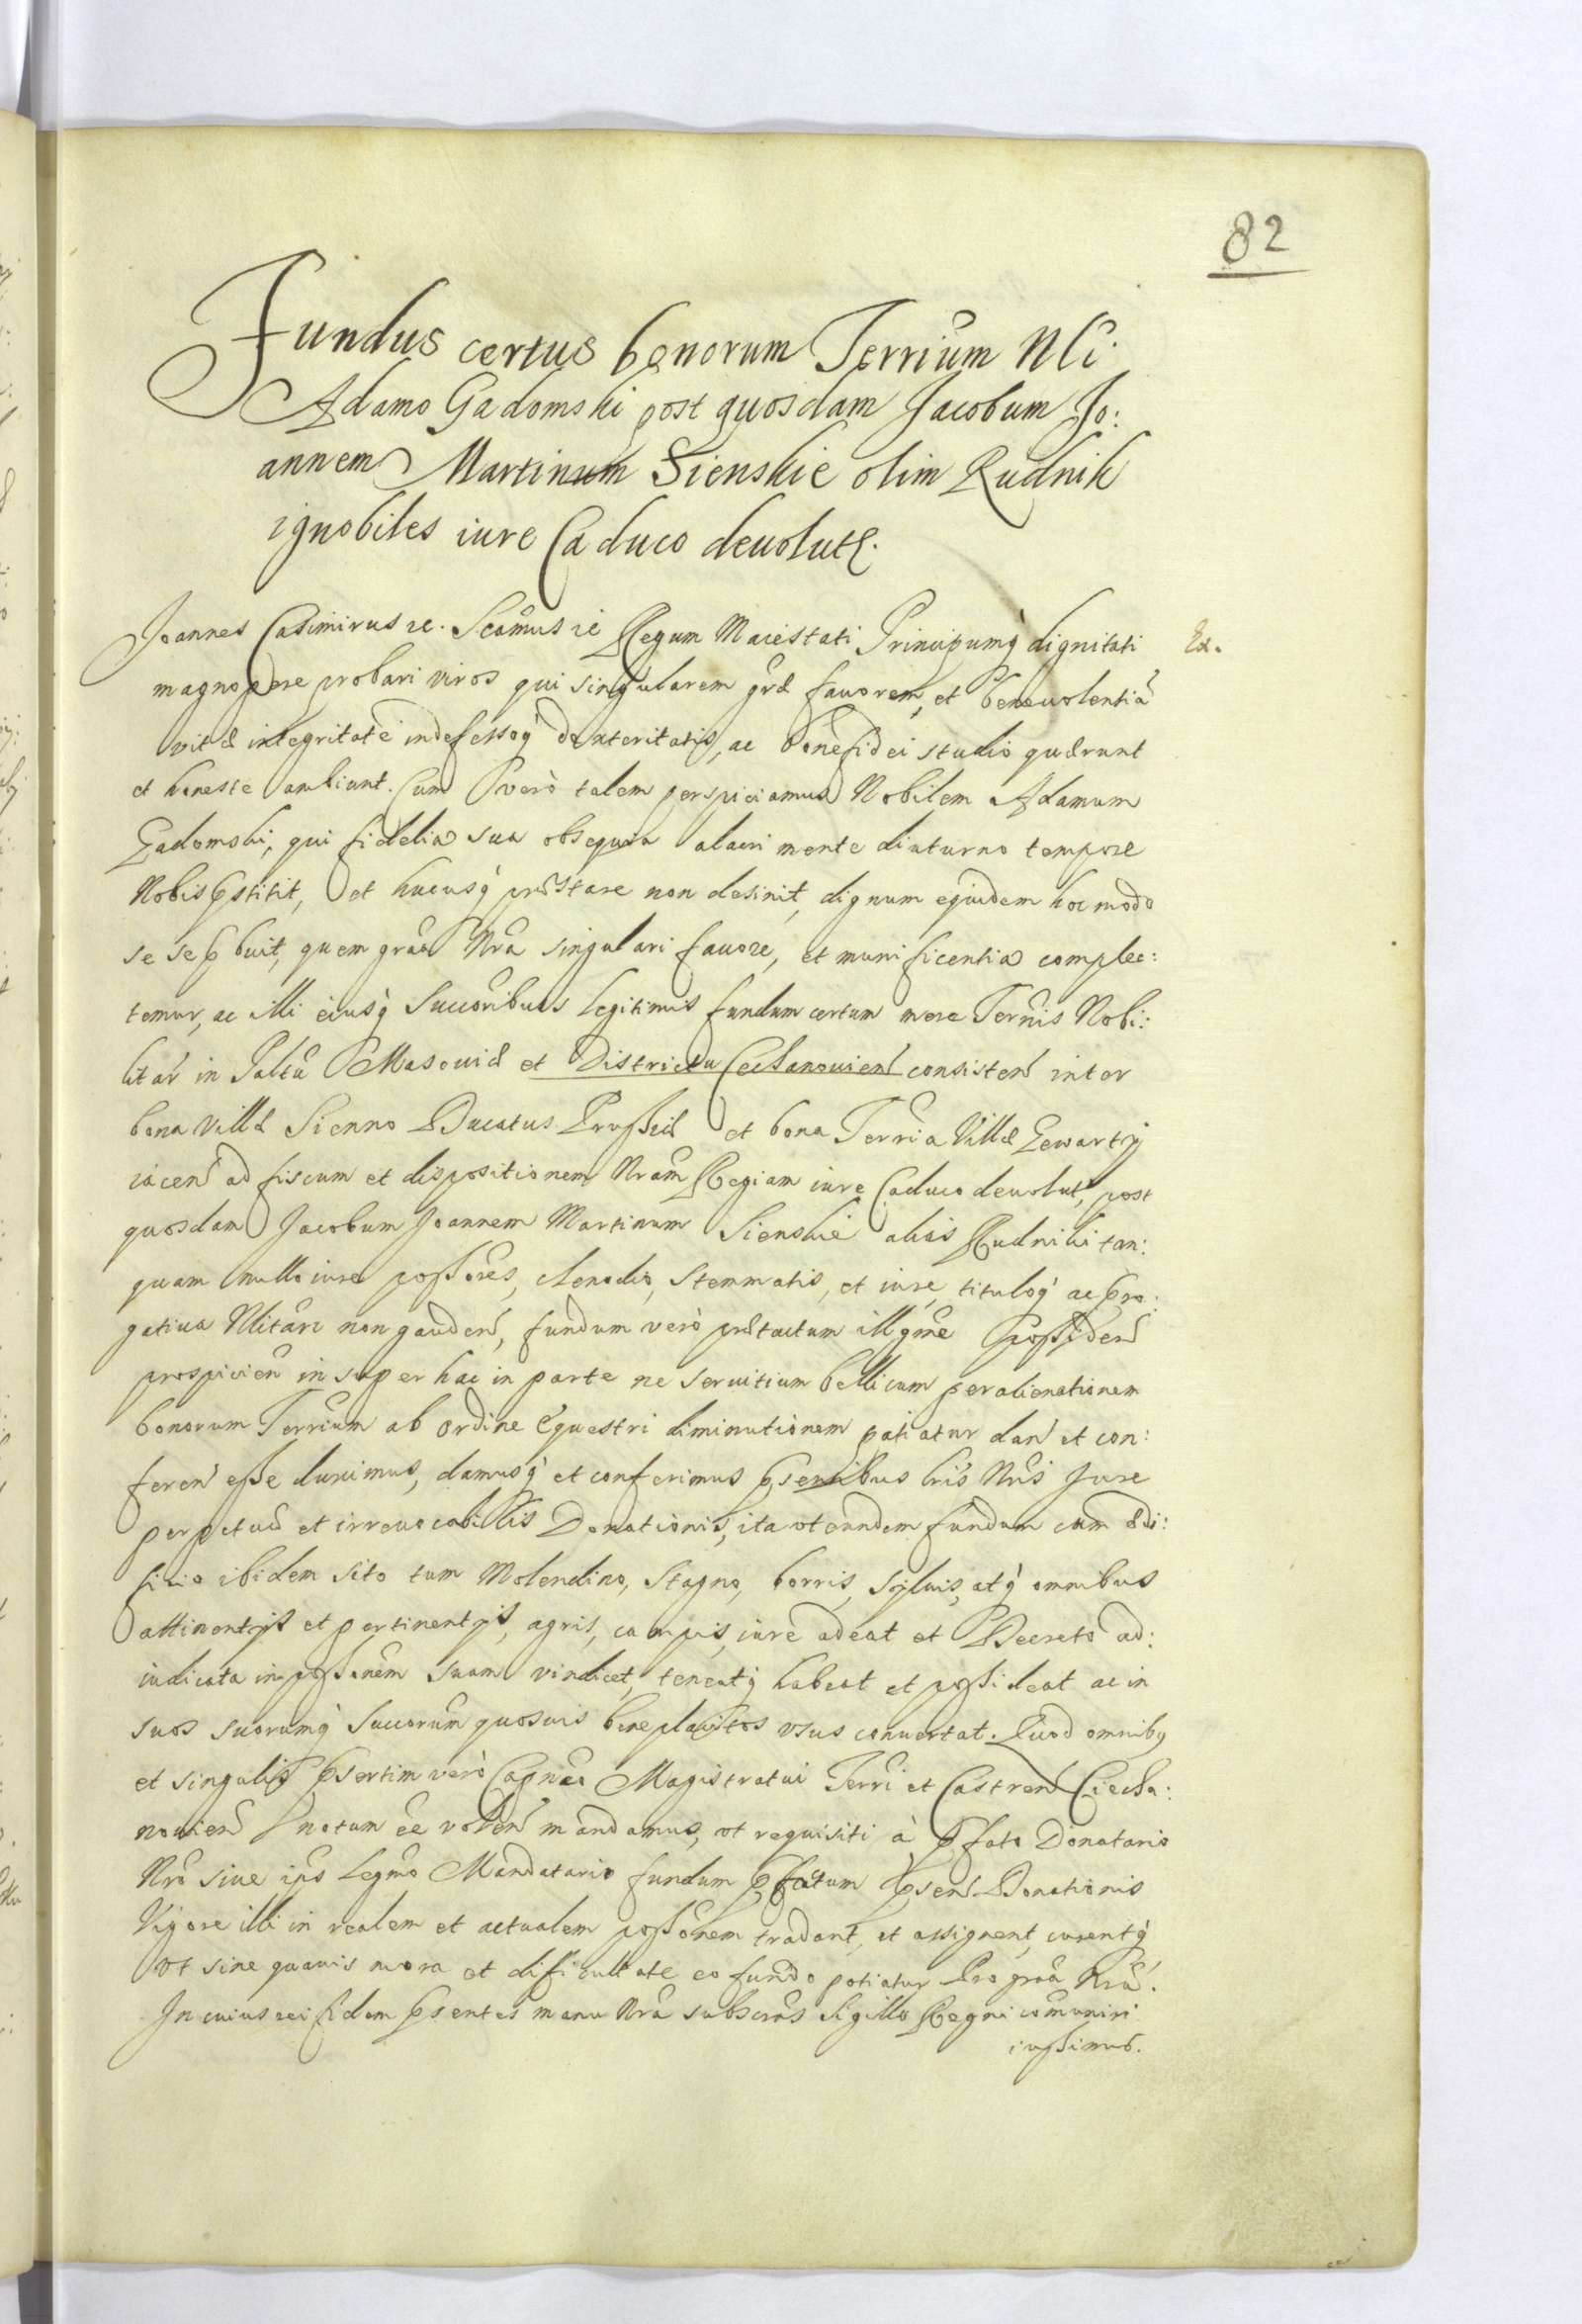 82
Fundus certus bonorum Terrium Nli
Adamo Gadomski post quosdam Jacobum Jo:
annem Martinum Sienskie olim Rudnik
ignobiles iure Caduco deuolut.
Joannes Casimirus etc. Scamus ie Regum Maiestati Principumq dignitati
Ex.
magnopere probari viros qui singularem græ fauorem, et beneuolentiã
vitæ integritate indefessoq dexteritatis, ac bonæ fidei studio quærunt
et honeste ambiunt. Cum verò talem perspiciamus Nobilem Adamum
Gadomski, qui fidelia sua obsequia alacri mente diuturno tempore
Nobis pstitit, et hucusq præstare non desinit, dignum equidem hoc modo
se se pbuit, quem graa Nra singulari fauore, et munificentia complec:
temur, ac illi eiusq Succoribus legitimis fundum certum mere Terris Nobi:
litar in Paltu Masouiæ et Districtu Cechanouien consisten inter
bona Villæ Sienno Ducatus Prussiæ et bona Terria Villæ Gewarty
iacen ad fiscum et dispositionem Nram Regiam iure Caduco deuolut, post
quosdam Jacobum Joannem Martinum Sienskie alias Rudniki tan:
quam nullo iure possores, clenodio, Stemmatis, et iure, tituloq ac pro:
gatiua Nlitari non gauden, fundum verò prætactum illgme possiden
prospicien insuper hac in parte ne seruitium bellicum per alienationem
bonorum Terrium ab ordine Equestri diminutionem patiatur dan et con:
feren esse duximus, damusq et conferimus psentibus lris Nris Jure
perpetuæ et irreuocabilis Donationis, ita vt eundem fundum cum ædi:
ficio ibidem sito tum Molendino, Stagno, borris, syluis, atq omnibus
attinentijs et pertinentijs, agris, campis, iure adeat et Decreto ad:
iudicata in possonem suam vindicet, teneatq habeat et possideat ac in
suos suorumq Succorum quosuis beneplacitos vsus conuertat. Quod omnibq
et singulis psertim verò Magistratui Terri et Castren Ciecha:
nouien notum ee volen mandamus, vt requisiti à pfato Donatario
Nro siue ips legmo Mandatario fundum pfatum psen Donationis
Vigore illi in realem et actualem possonem tradant, et assignent, curentq
vt sine quauis mora et dificultate eo fundo potiatur Pro graa Nra.
In cuius rei fidem psentes manu Nra subscras Sigillo Regni comuniri
iussimus.